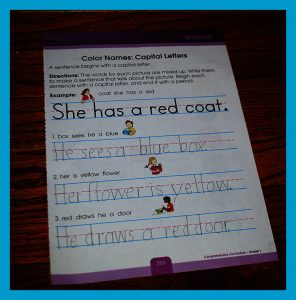 SPELLING
Color Names: Capital Letters
A sentence begins with a capital letter.
Directions: The words by each picture are mixed up. Write them
to make a sentence that tells about the picture. Begin each
sentence with a capital letter, and end it with a period.
Example: coat she has a red
She has a red coat.
1. box sees he a blue
He sees a blue box.
2. her is yellow flower
Her flower is yellow.
3. red draws he a door
He draws a red door.
233
Comprehensive Curriculum - Grade 1